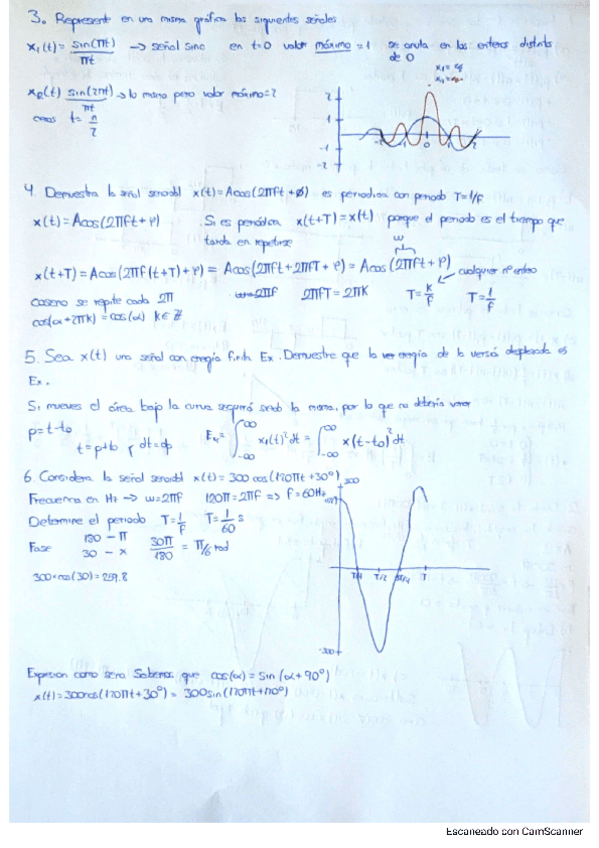 3. Represente en una misma gráfica las siguientes señales
x₁(t) = sin(πt)/πt → señal sinc en t=0 valor máximo = 1 se anula en los enteros distintos de 0
x₂(t) sin(2πt)/πt → lo mismo pero valor máximo = 2
ceros t = n/2
2
1
-1
-2
-2 -1 0 1 2
4. Demuestra la señal senoidal x(t) = Acos(2πft + ϕ) es periodica con periodo T = 1/f
x(t) = Acos(2πft + φ) Si es periódica x(t+T) = x(t) porque el periodo es el tiempo que tarda en repetirse
x(t+T) = Acos(2πf(t+T) + φ) = Acos(2πft + 2πfT + φ) = Acos(2πft + φ)
w
cualquier nº entero
Coseno se repite cada 2π w=2πf 2πfT = 2πK T = K/f T = 1/f
cos(α + 2πk) = cos(α) k∈Z
5. Sea x(t) una señal con energía finita Ex. Demuestre que la energía de la versión desplazada es
Ex.
Si mueves el área bajo la curva seguirá siendo la misma, por lo que no debería variar
p = t - to
t = p + to dt = dp
Ex = ∫ ∞ -∞ x₁(t)² dt = ∫ ∞ -∞ x(t-to)² dt
6. Considera la señal senoidal x(t) = 300 cos(120πt + 30°)
Frecuencia en Hz → w = 2πf 120π = 2πf => f = 60Hz
Determine el periodo T = 1/f T = 1/60 s
Fase 180 - π
30 - x
30π/180 = π/6 rad
300·cos(30) = 259.8
300
-300
T/4 T/2 3T/4 T
Expresión como seno. Sabemos que cos(α) = sin(α + 90°)
x(t) = 300cos(120πt + 30°) = 300sin(120πt + 120°)
Escaneado con CamScanner